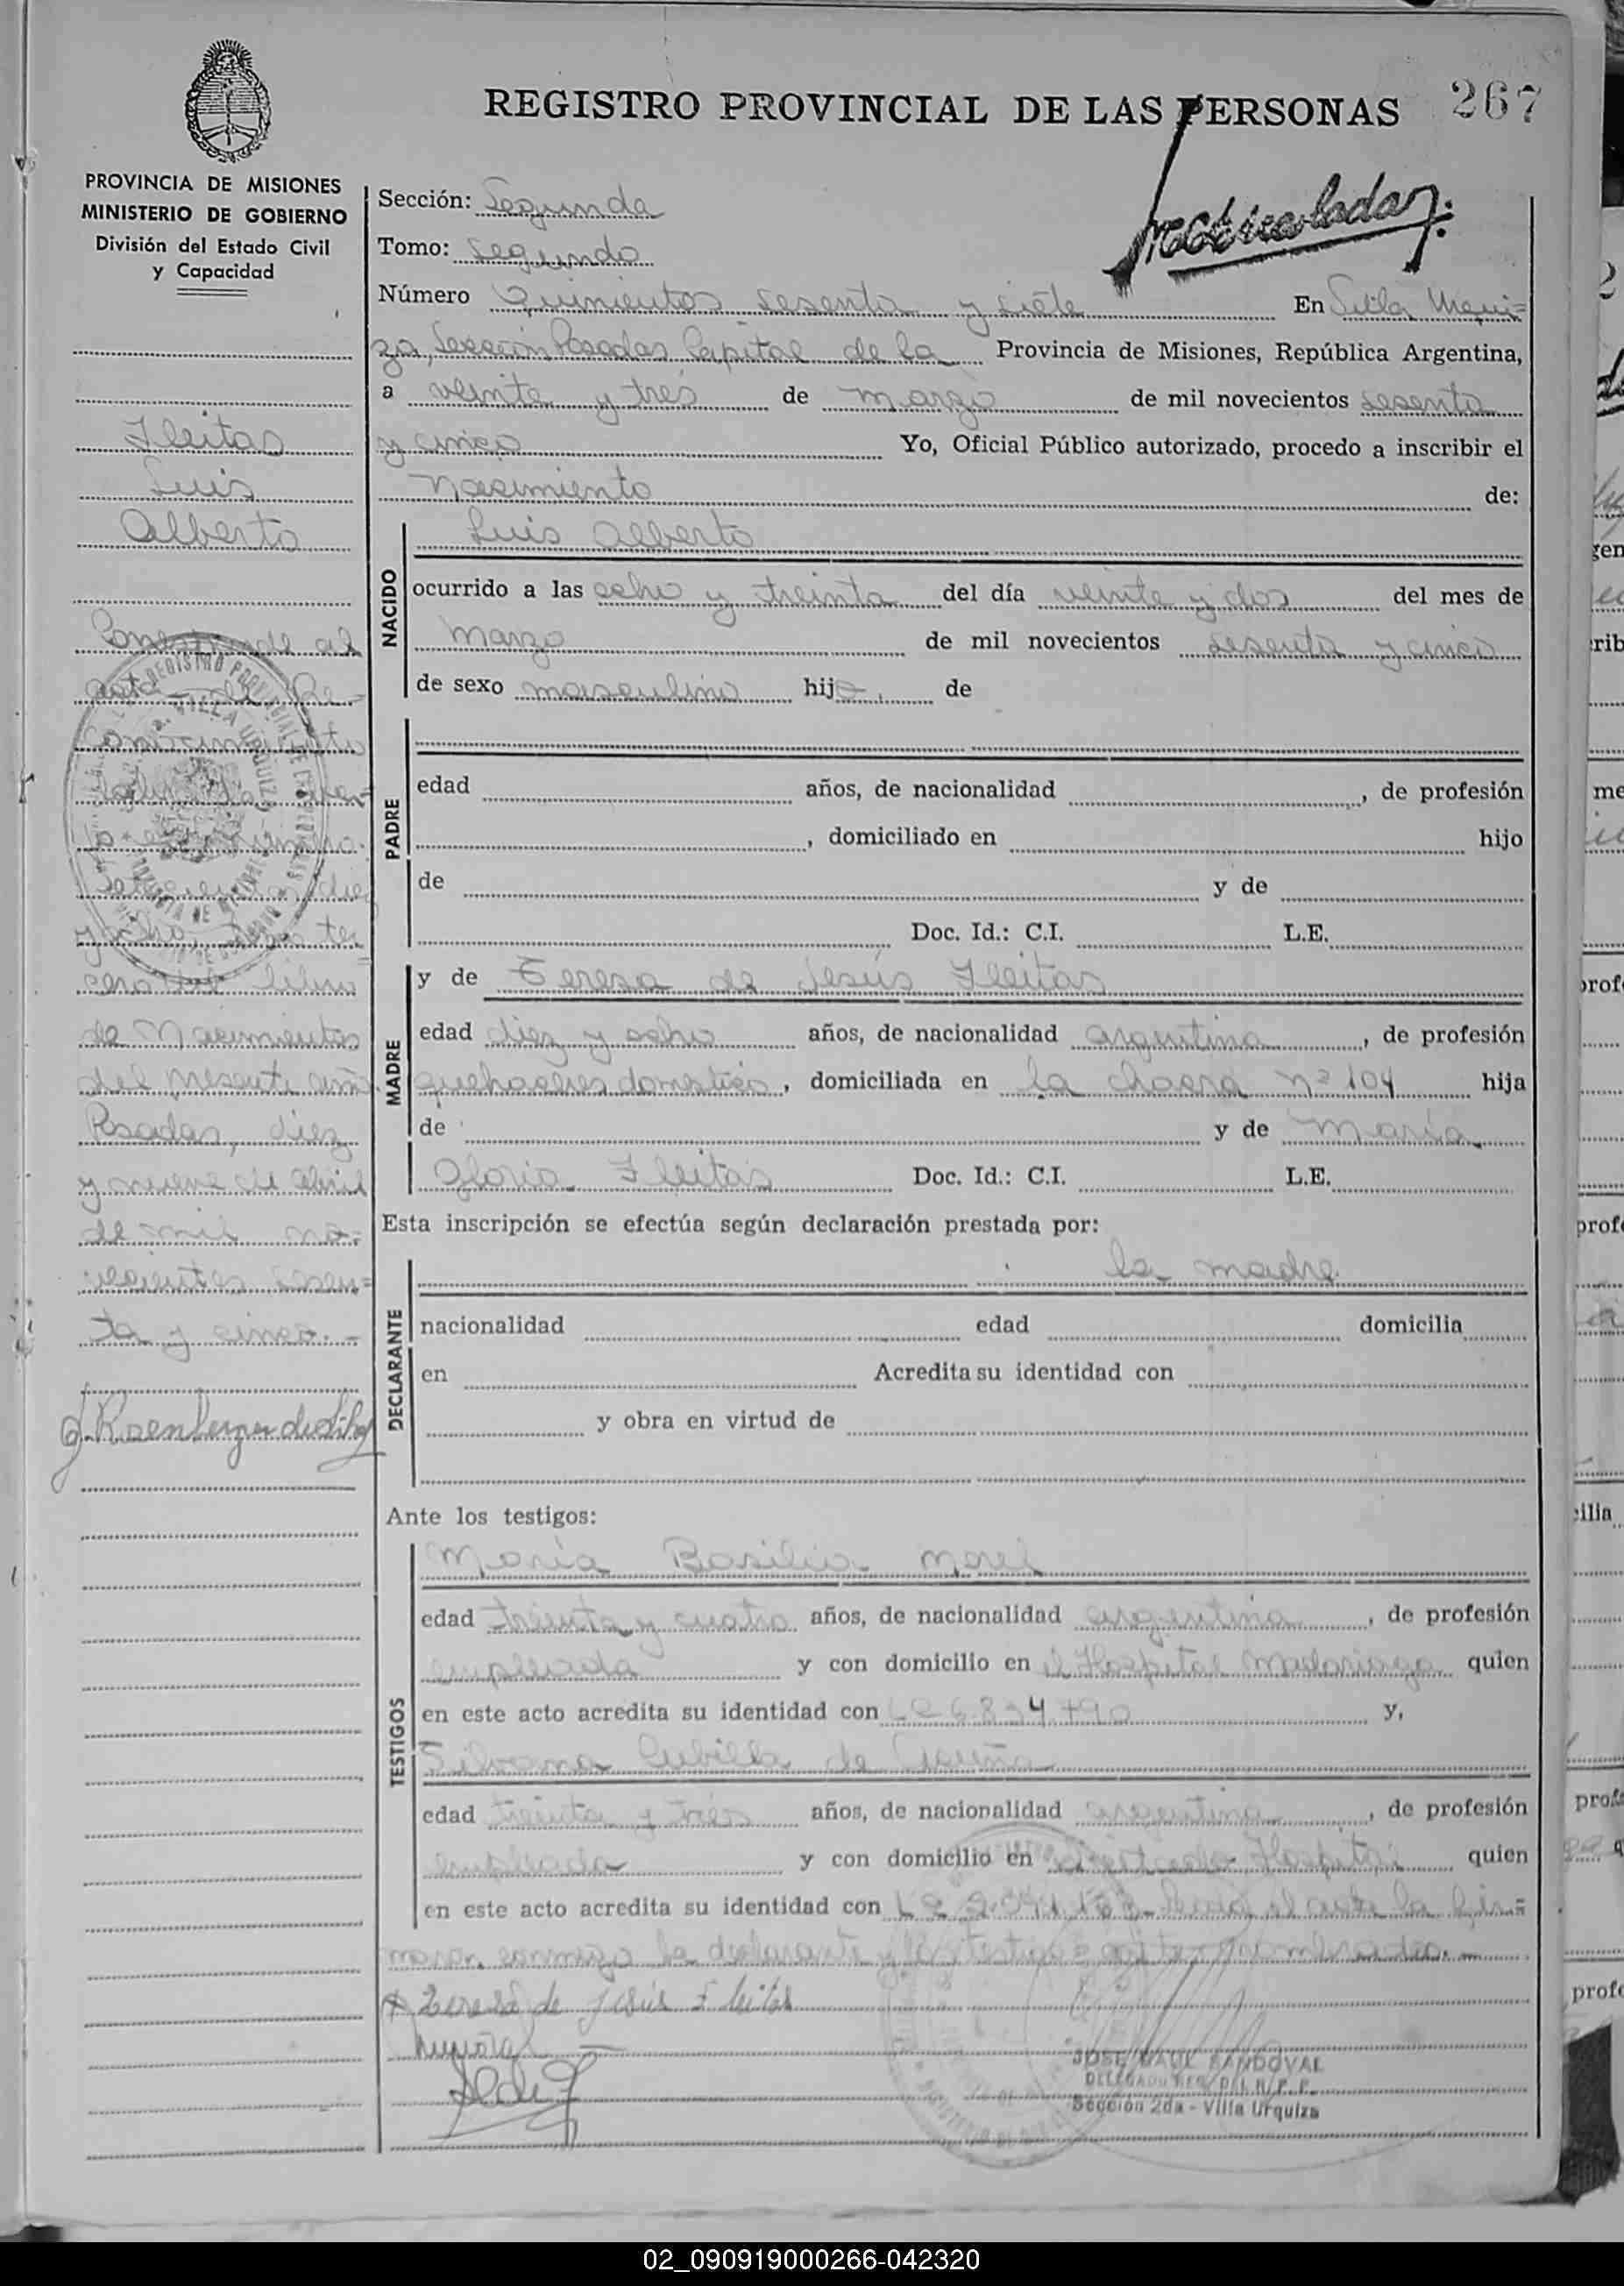 REGISTRO PROVINCIAL DE LAS PERSONAS
267
PROVINCIA DE MISIONES
MINISTERIO DE GOBIERNO
División del Estado Civil
y Capacidad
Sección: Segunda
Tomo: Segundo
Número Quinientos sesenta y siete En Villa Urqui-
za, Sección Posadas Capital de la Provincia de Misiones, República Argentina,
a veinte y tres de marzo de mil novecientos sesenta
y cinco Yo, Oficial Público autorizado, procedo a inscribir el
Nacimiento de:
Fleitas
Luis
Alberto
NACIDO
Luis Alberto
ocurrido a las ocho y treinta del día veinte y dos del mes de
Marzo de mil novecientos sesenta y cinco
de sexo masculino hijo de
PADRE
edad años, de nacionalidad , de profesión
, domiciliado en hijo
de y de
Doc. Id.: C.I. L.E.
MADRE
y de Teresa de Jesús Fleitas
edad diez y ocho años, de nacionalidad argentina , de profesión
quehaceres domestico , domiciliada en la chacra nº 104 hija
de y de María
Gloria Fleitas Doc. Id.: C.I. L.E.
Esta inscripción se efectúa según declaración prestada por:
DECLARANTE
la madre
nacionalidad edad domicilia
en Acredita su identidad con
y obra en virtud de
Ante los testigos:
TESTIGOS
María Basilia Morel
edad treinta y cuatro años, de nacionalidad argentina , de profesión
empleada y con domicilio en el Hospital Madariaga quien
en este acto acredita su identidad con y,
Silvana Cubilla de Acuña
edad treinta y tres años, de nacionalidad argentina , de profesión
empleada y con domicilio en Hospital quien
en este acto acredita su identidad con Leida el acta la fir=
maron conmigo la declarante y
Teresa de Jesús Fleitas
JOSE RAUL SANDOVAL
Sección 2da - Villa Urquiza
Corresponde al
acta de Re-
conocimiento
número
diez
y ocho, ter
cero del libro
de Nacimientos
del presente año
Posadas, diez
y nueve de Abril
de mil no-
vecientos sesen=
ta y cinco.-
02_090919000266-042320